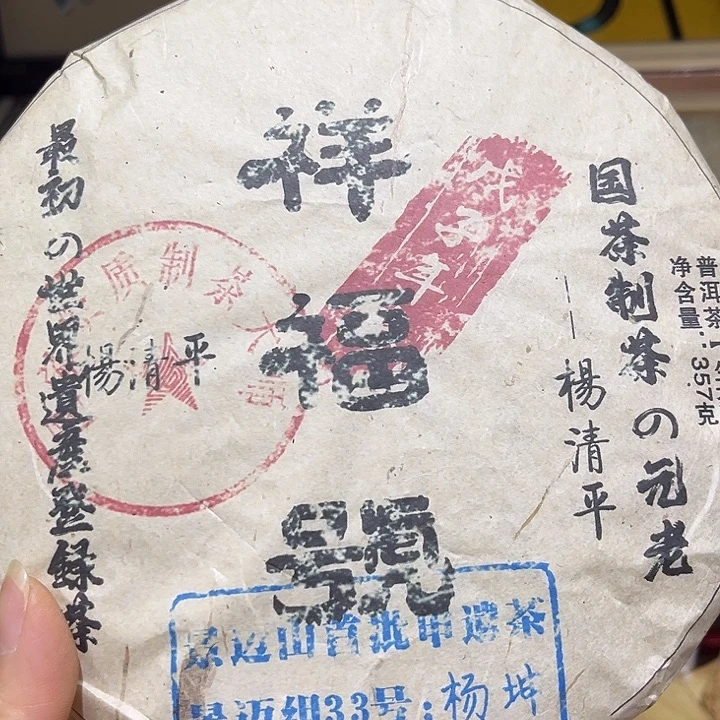 祥福號
最初の世界遺産登録茶
国茶制茶の元老
—楊清平
普洱茶
净含量：357克
质制茶大师
楊清平
景迈山首批申遗茶
景迈组33号：杨